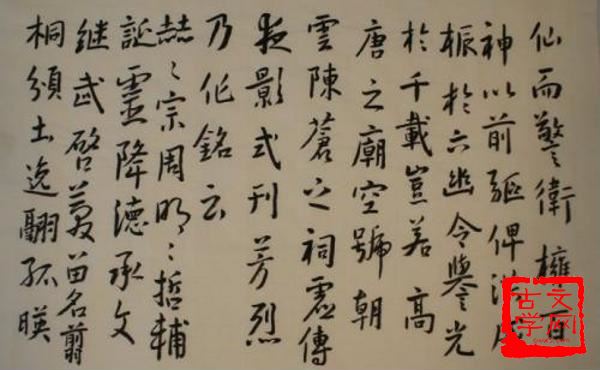 仙而警衛擁百
神以前驅俾洪威
振於六幽令譽光
於千載豈若高
唐之廟空號朝
雲陳蒼之祠虛傳
夜影式刊芳烈
乃作銘云
赫〻宗周明〻哲輔
誕靈降德承文
継武啓慶留名翦
桐頒土逸翮孤暎
古文学网